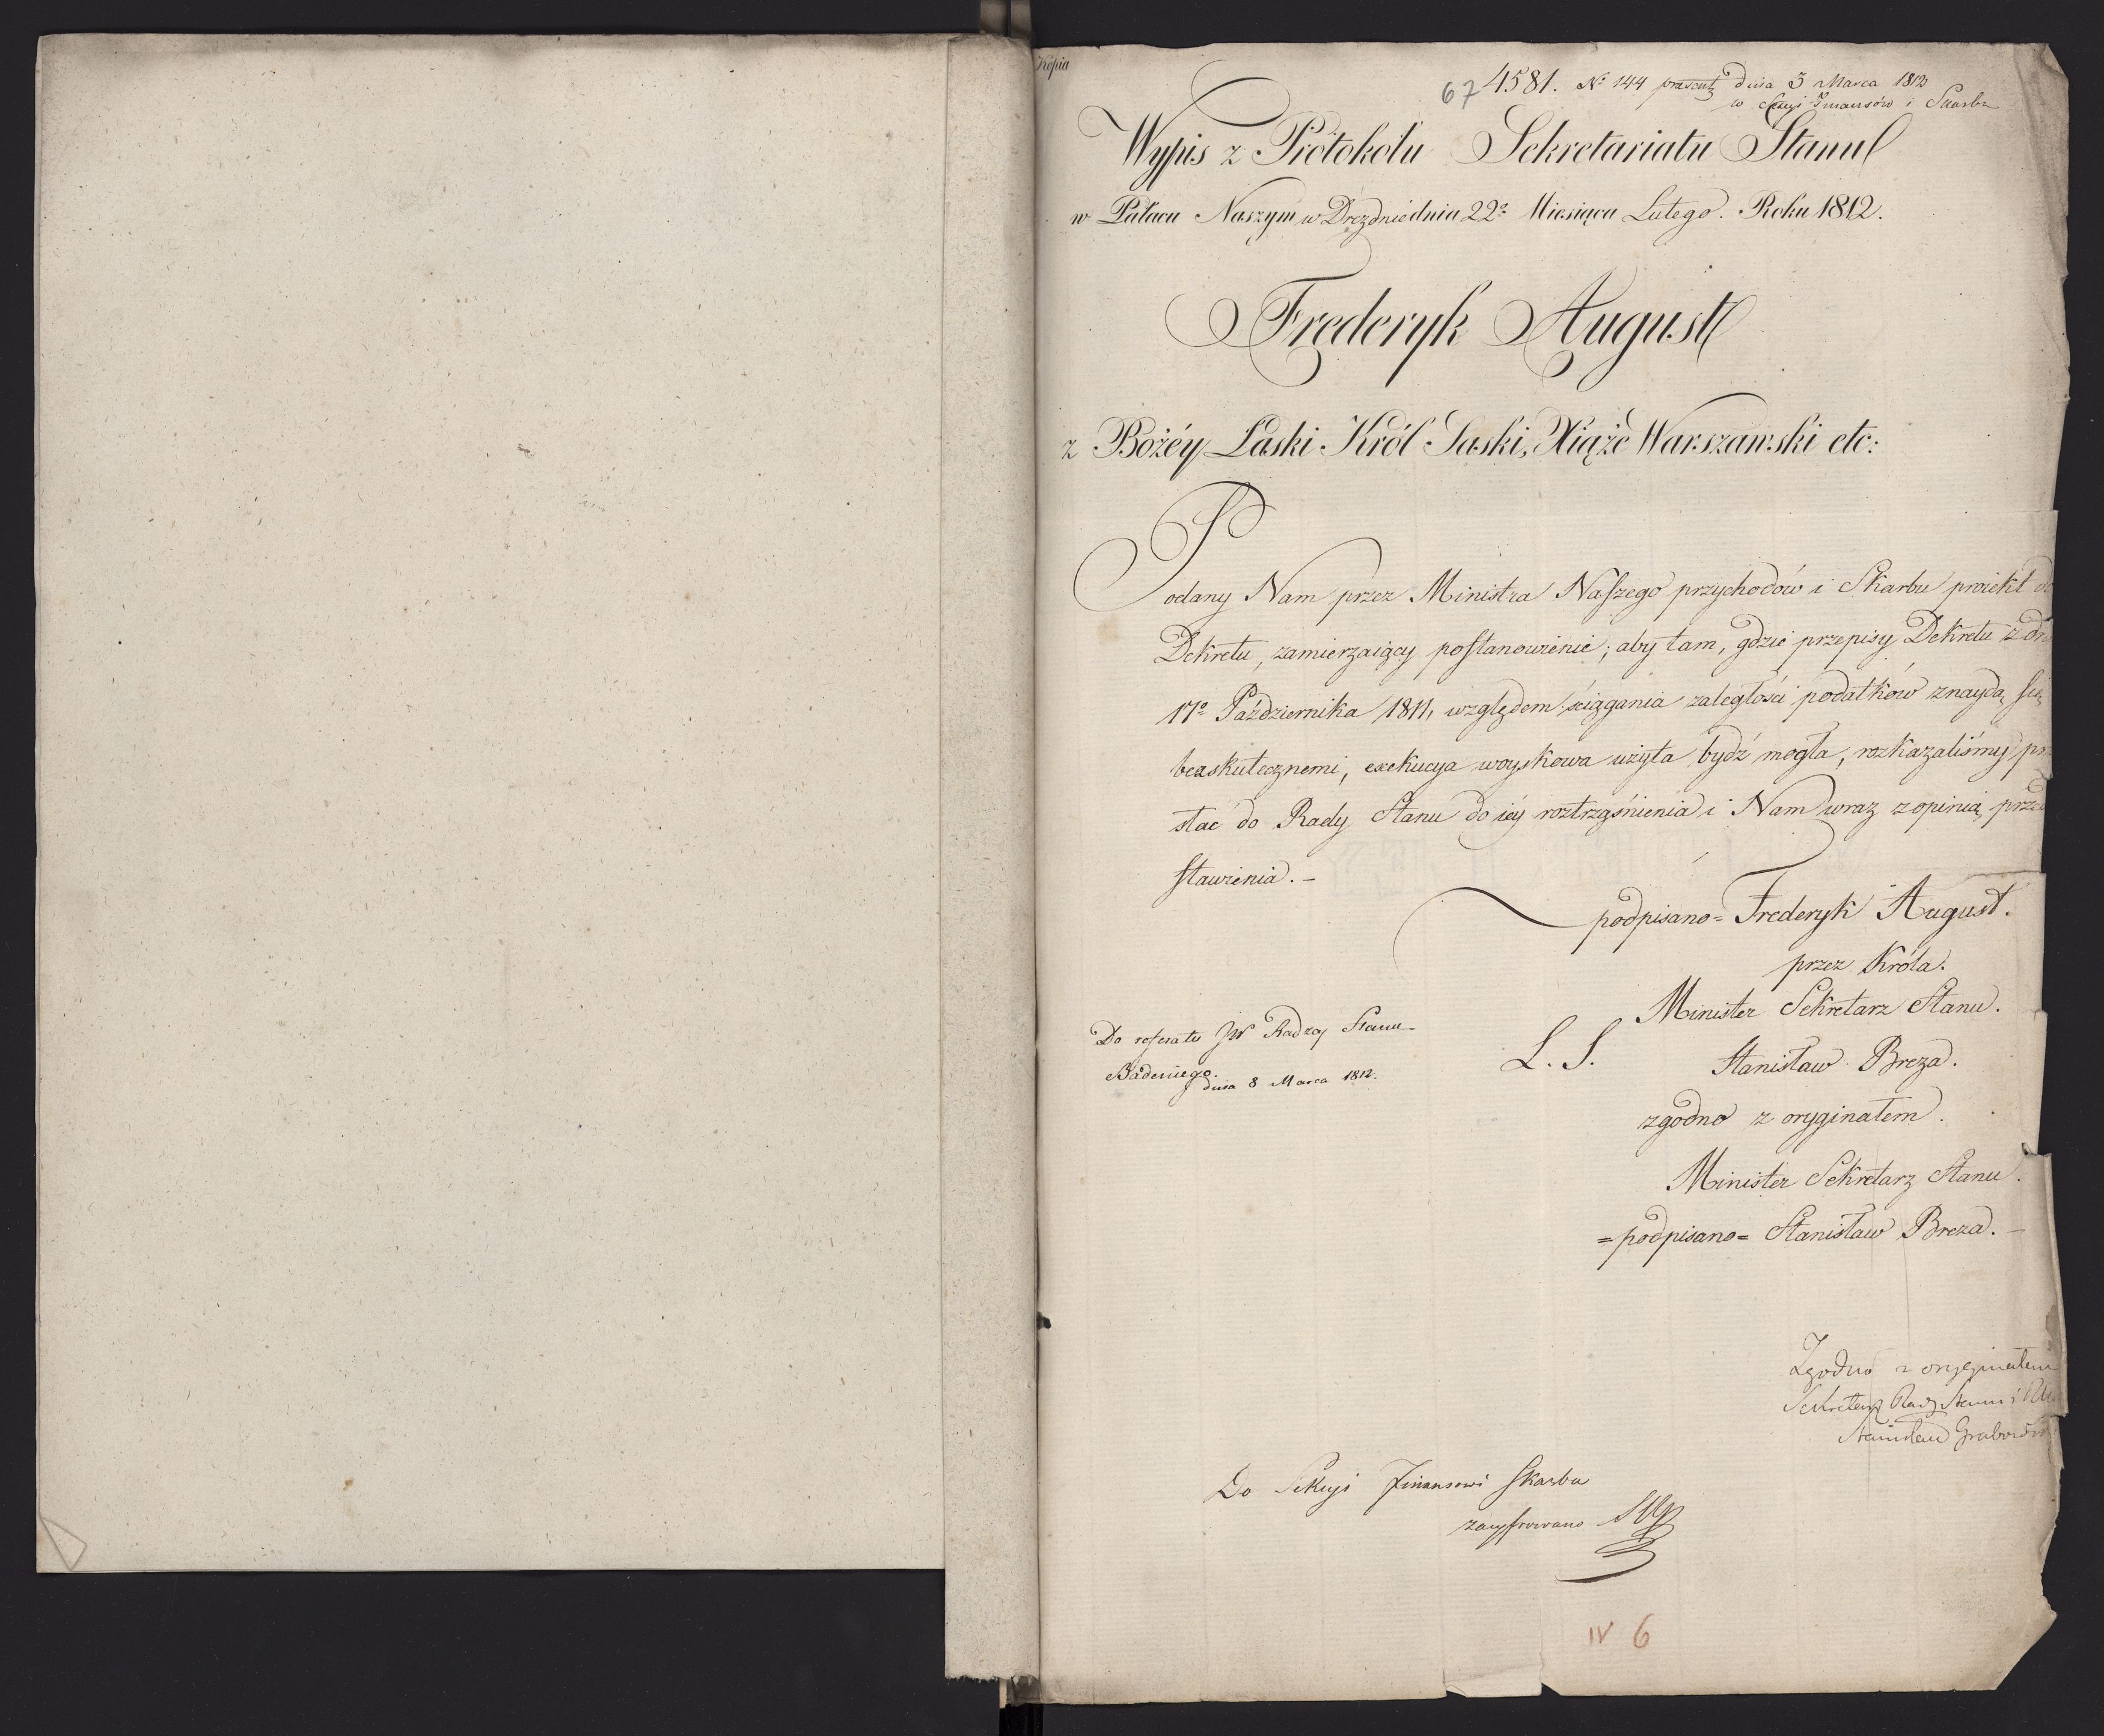 Kopia
67 4581. N° 144 praesent dnia 3 Marca 1812
w Sekcyi Finansów i Skarbu
Wypis z Protokołu Sekretariatu Stanu
w Pałacu Naszym w Dreznie dnia 22° Miesiąca Lutego. Roku 1812.
Frederyk August
z Bożéy Łaski Król Saski, Xiąże Warszawski etc:
Podany Nam przez Ministra Naszego przychodów i Skarbu proiekt do
Dekretu, zamierzaiący postanowienie; aby tam, gdzie przepisy Dekretu z dn
17° Października 1811, względem ściągania zaległości podatków znaydą się
bezskutecznemi, exekucya woyskowa użyta bydź mogła, rozkazaliśmy prze
słać do Rady Stanu do iéy roztrząśnienia i Nam wraz z opinią przed
stawienia. –
podpisano = Frederyk August.
przez Króla.
Minister Sekretarz Stanu.
L. S. Stanisław Breza.
zgodno z oryginałem.
Minister Sekretarz Stanu.
= podpisano = Stanisław Breza. –
Do referatu JW Radzcy Stanu
Badeniego.
dnia 8 Marca 1812.
Zgodno z oryginałem
Sekretarz Rady Stanu i
Stanisław Grabowski
Do Sekcyi Finansów i Skarbu
zacyfrowano
IV 6